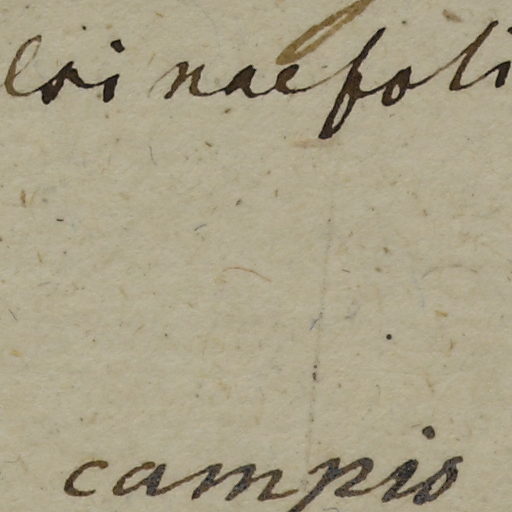 erinaefoli
campis